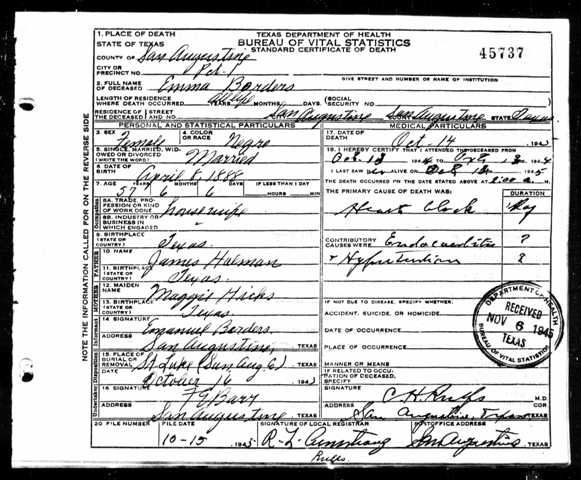 TEXAS DEPARTMENT OF HEALTH
BUREAU OF VITAL STATISTICS
STANDARD CERTIFICATE OF DEATH
45737
1. PLACE OF DEATH
STATE OF TEXAS
COUNTY OF San Augustine
CITY OR
PRECINCT NO. Pct. 1
GIVE STREET AND NUMBER OR NAME OF INSTITUTION
2. FULL NAME
OF DECEASED Emma Borders
LENGTH OF RESIDENCE
WHERE DEATH OCCURRED YEARS MONTHS DAYS
(SOCIAL
SECURITY NO.
RESIDENCE OF THE DECEASED
STREET AND NO. San Augustine San Augustine STATE Texas
PERSONAL AND STATISTICAL PARTICULARS
3. SEX Female
4. COLOR OR RACE Negro
5. SINGLE, MARRIED, WIDOWED OR DIVORCED (WRITE THE WORD) Married
6. DATE OF BIRTH April 8, 1888
7. AGE YEARS 57 MONTHS 6 DAYS 6 IF LESS THAN 1 DAY
8A. TRADE, PROFESSION OR KIND OF WORK DONE housewife
8B. INDUSTRY OR BUSINESS IN WHICH ENGAGED
9. BIRTHPLACE (STATE OR COUNTRY) Texas
FATHER
10. NAME James Holman
11. BIRTHPLACE (STATE OR COUNTRY) Texas
MOTHER
12. MAIDEN NAME Maggie Hicks
13. BIRTHPLACE (STATE OR COUNTRY) Texas
14. SIGNATURE Emanuel Borders
ADDRESS San Augustine, TEXAS
15. PLACE OF BURIAL OR REMOVAL St Luke (San Aug. Co) TEXAS
October 16
16. SIGNATURE
ADDRESS San Augustine TEXAS
MEDICAL PARTICULARS
17. DATE OF DEATH Oct. 14
18. I HEREBY CERTIFY THAT I ATTENDED THE DECEASED FROM
I LAST SAW ALIVE ON Oct
THE DEATH OCCURRED ON THE DATE STATED ABOVE AT
THE PRIMARY CAUSE OF DEATH WAS:
DURATION
Heart block
CONTRIBUTORY CAUSES WERE: Endocarditis ?
+ Hypertension ?
IF NOT DUE TO DISEASE, SPECIFY:
ACCIDENT, SUICIDE, OR HOMICIDE
DATE OF OCCURRENCE
PLACE OF OCCURRENCE
MANNER OR MEANS
IF RELATED TO OCCUPATION OF DECEASED, SPECIFY
SIGNATURE M.D.
ADDRESS San Augustine, Texas
20 FILE NUMBER
FILE DATE 10-15 1945
SIGNATURE OF LOCAL REGISTRAR R. L. Armstrong
POSTOFFICE ADDRESS San Augustine, TEXAS
DEPARTMENT OF HEALTH
RECEIVED
NOV 6 1945
TEXAS
BUREAU OF VITAL STATISTICS
NOTE THE INFORMATION CALLED FOR ON THE REVERSE SIDE